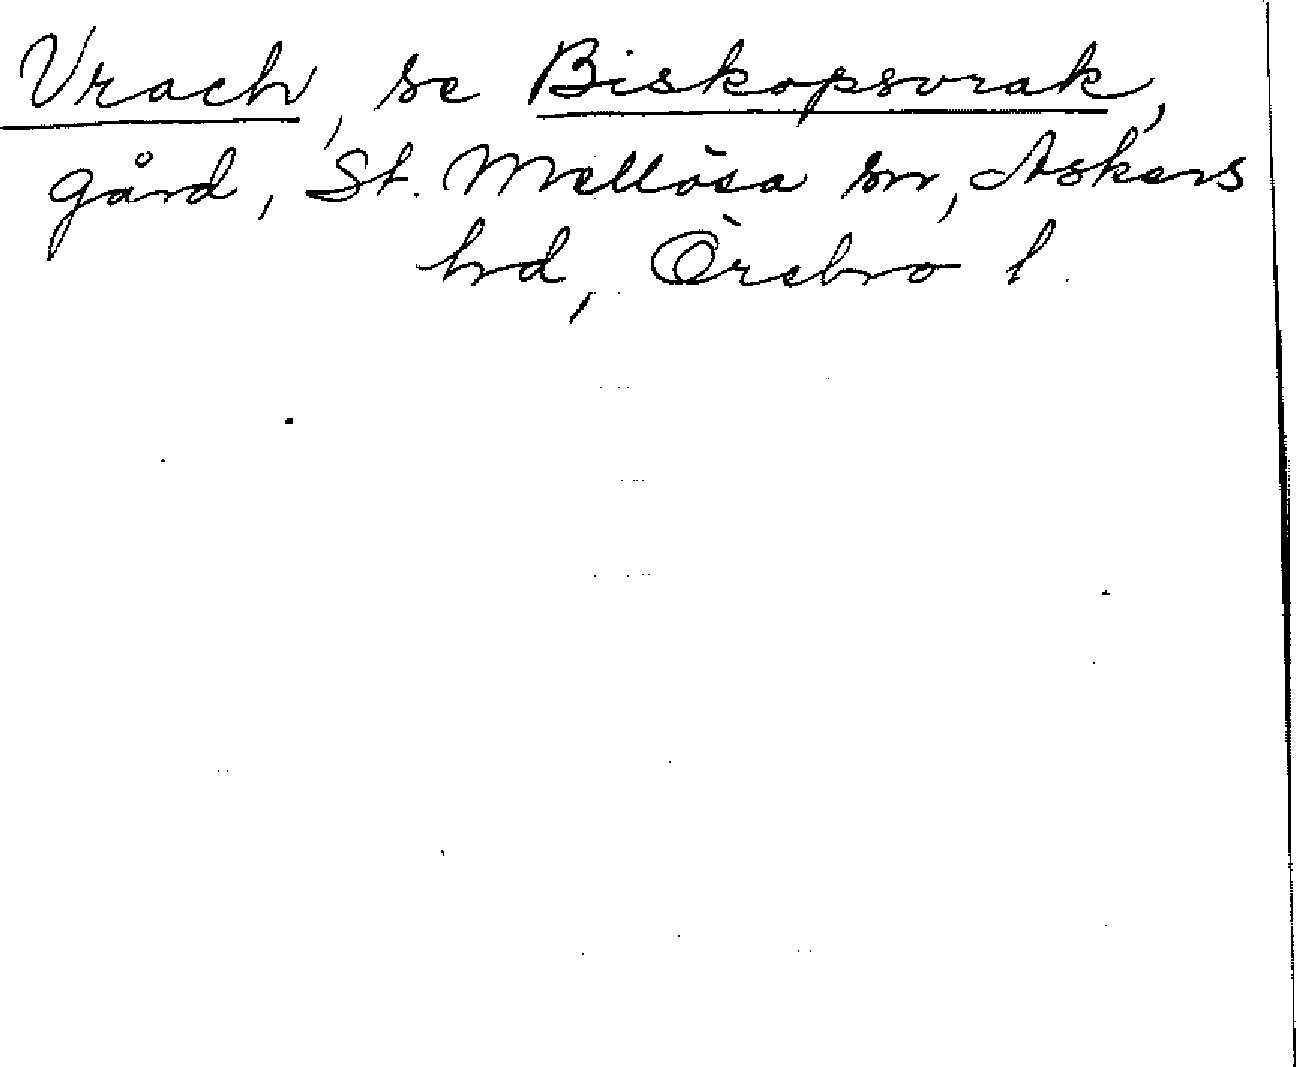 Vrach, se Biskopsvrak,
gård, St. Mellösa sn, Askers
hd, Örebro l.